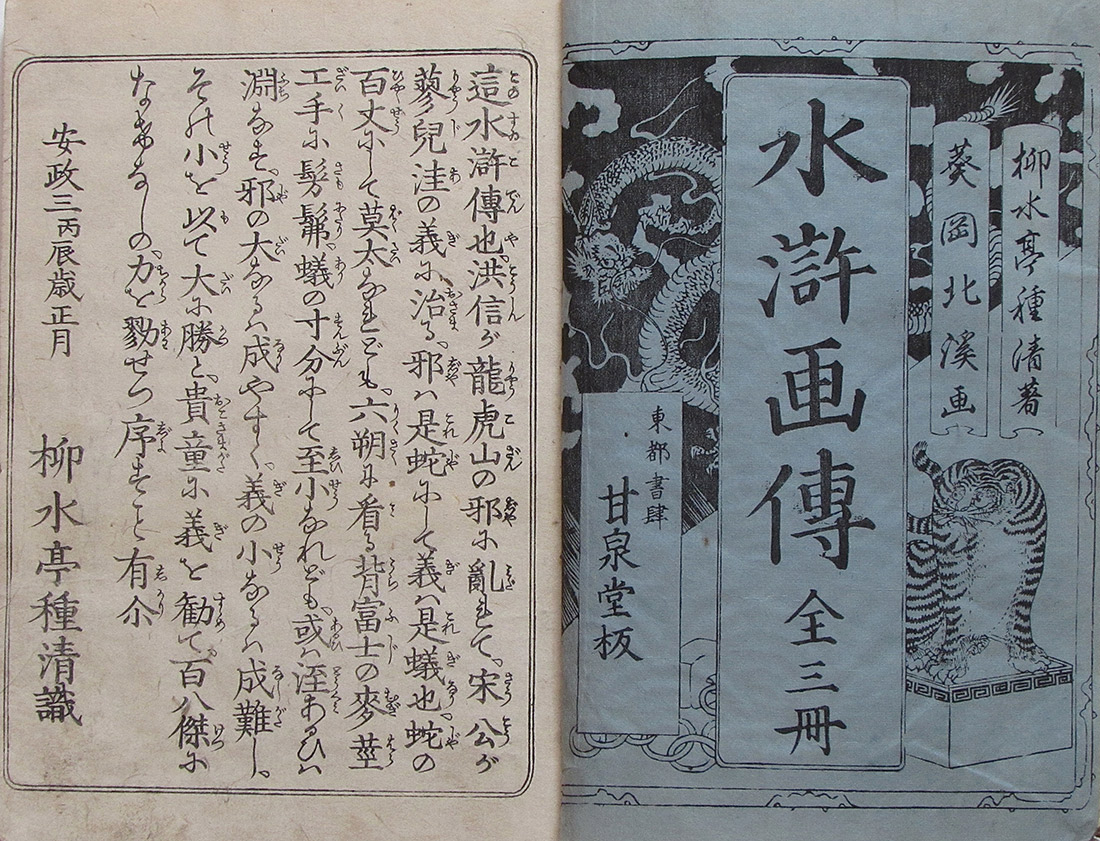 柳水亭種清著
葵岡北溪画
水滸画傳 全三冊
東都書肆
甘泉�板
這水滸傳也、洪信が龍虎山の邪に亂れて、宋公が
蓼兒洼の義に治る、邪ハ是蛇にして義ハ是蟻也、蛇の
百丈にして莫太なれども、六朔に看る背富士の麥莖
工手に髣髴、蟻の寸分にして至小なれども、或ハ洼あるひハ
淵なす、邪の大なるハ成やすく、義の小なるハ成難し、
その小を以て大に勝と、貴童に義を勸て、百八傑に
なきの、力を勠せつ序すこと有尒
安政三丙辰歳正月
柳水亭種清識